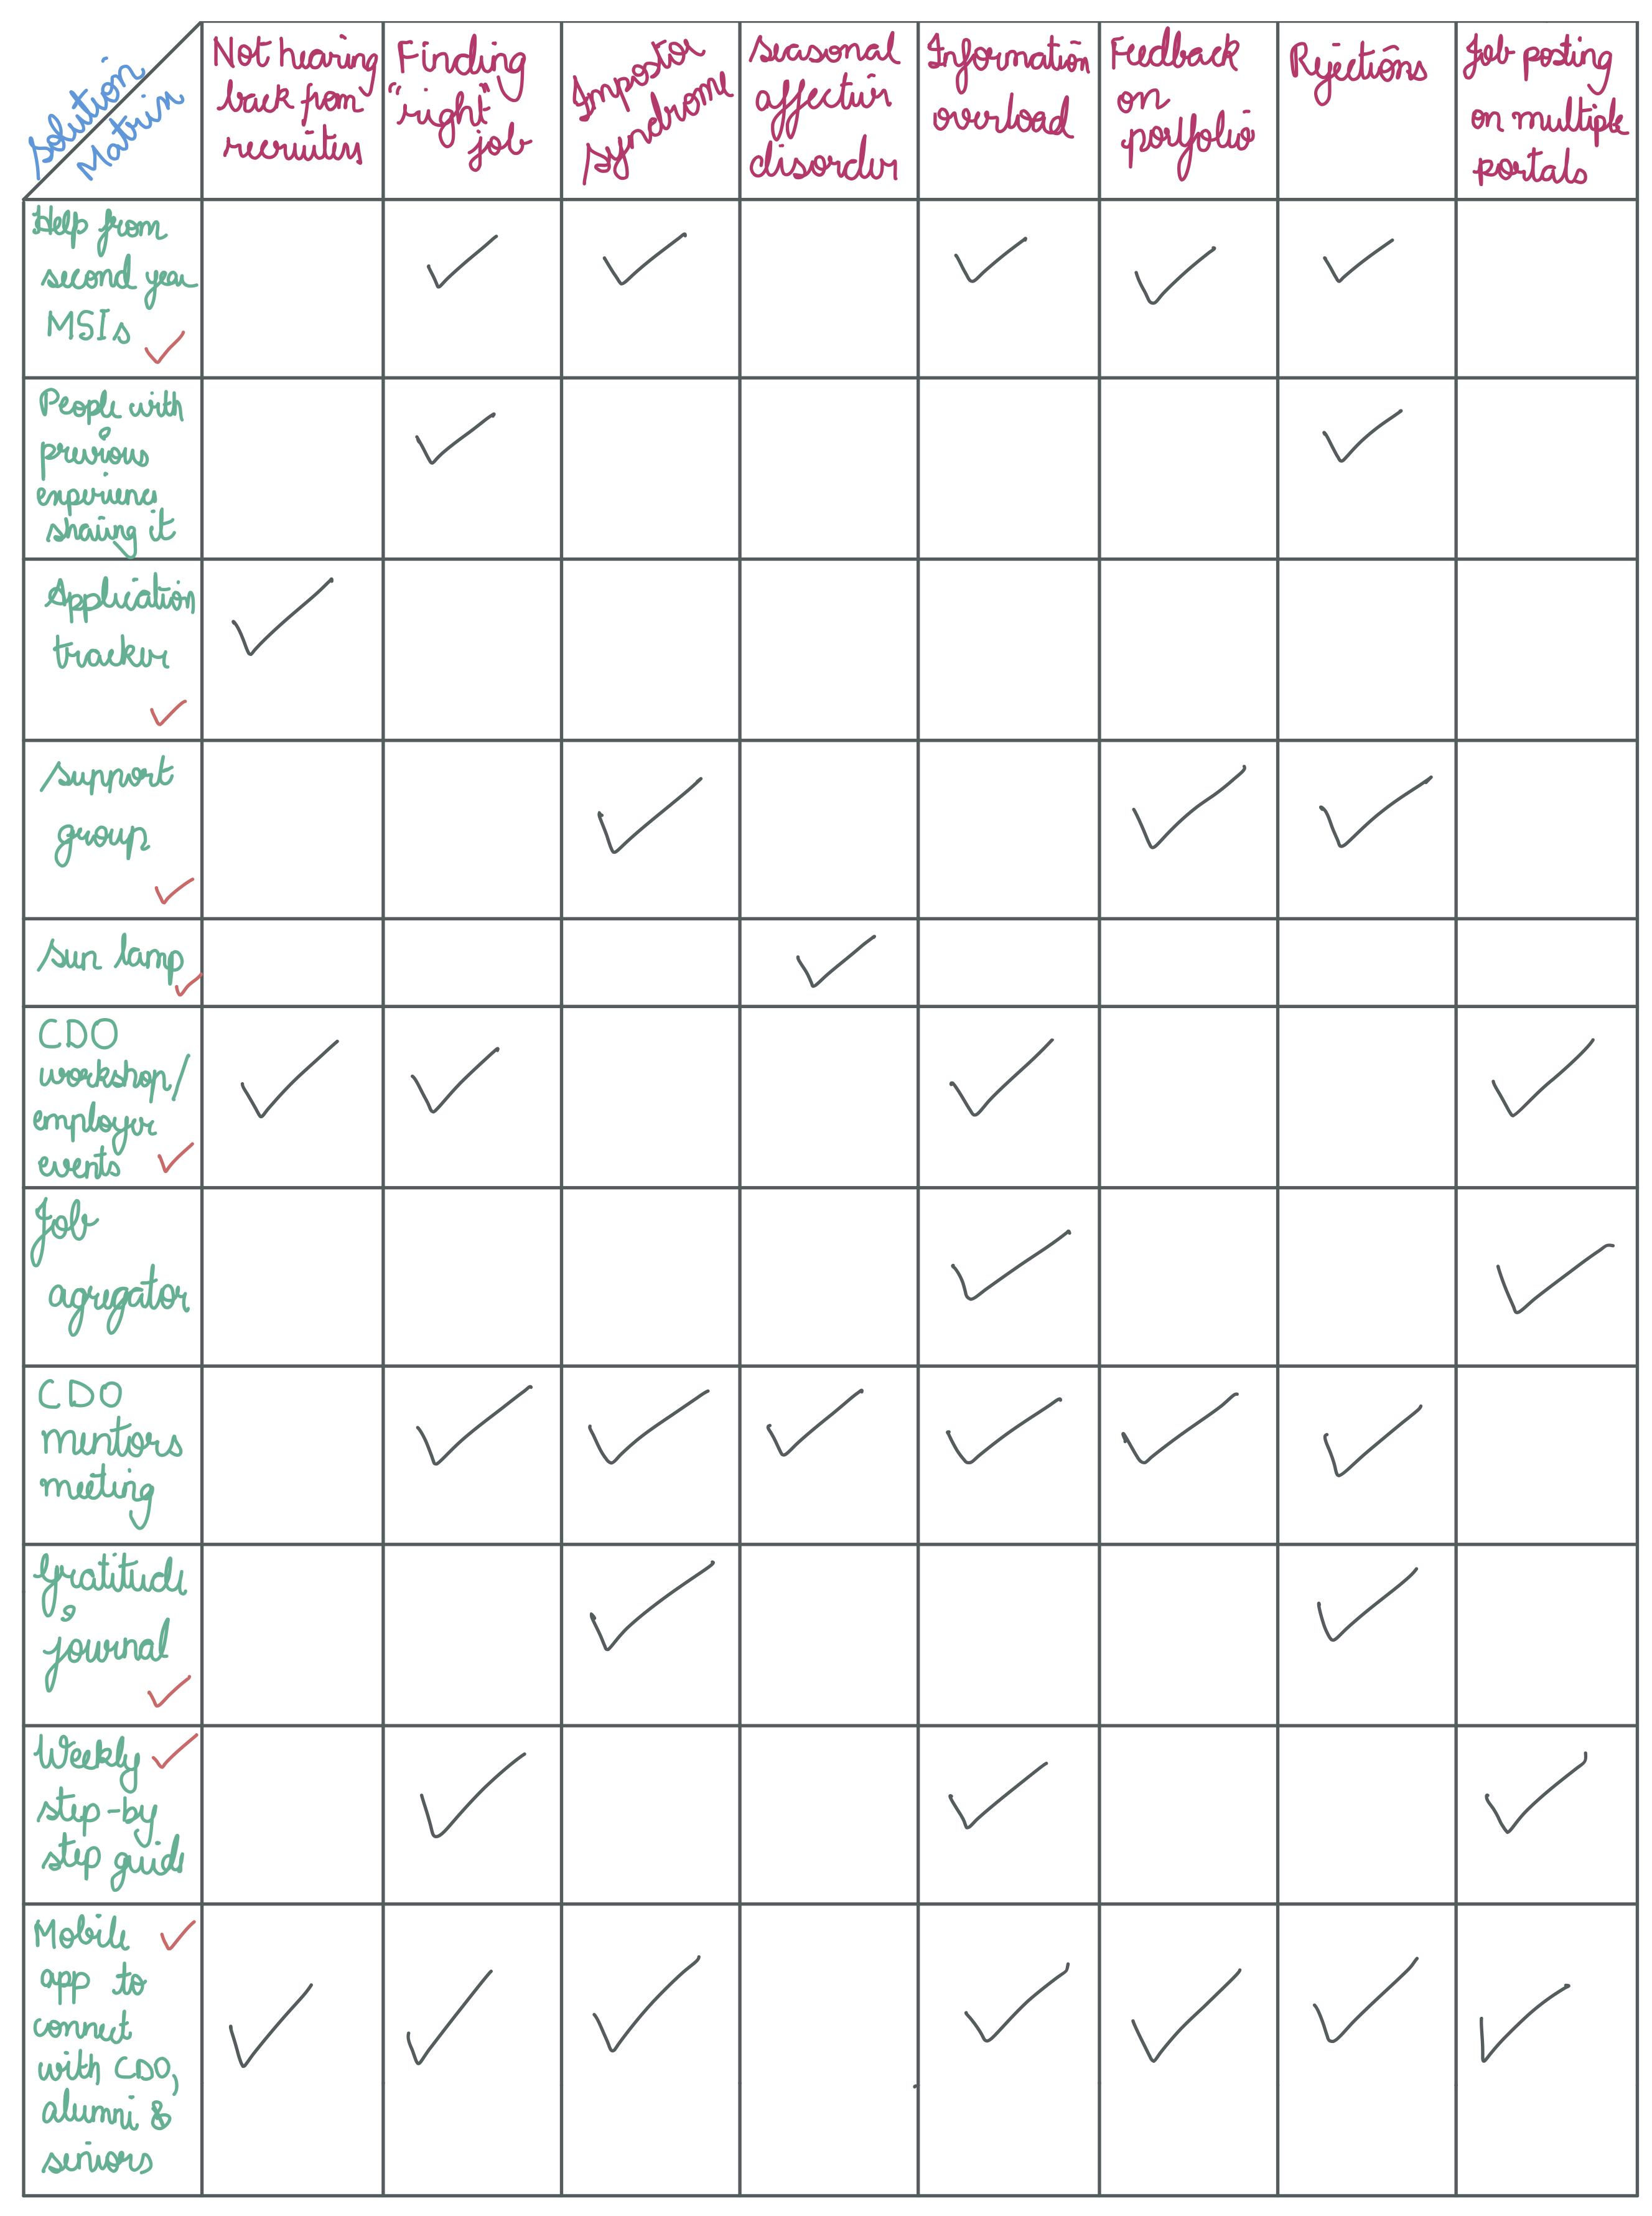 Solution
Matrix
Not hearing
back from
recruiters
Finding
"right"
job
Impostor
syndrome
Seasonal
affective
disorder
Information
overload
Feedback
on
portfolio
Rejections
Job posting
on multiple
portals
Help from
second year
MSIs
People with
previous
experience
sharing it
Application
tracker
Support
group
Sun lamp
CDO
workshop/
employer
events
Job
agregator
CDO
mentors
meeting
Gratitude
journal
Weekly
step-by
step guide
Mobile
app to
connect
with CDO,
alumni &
seniors